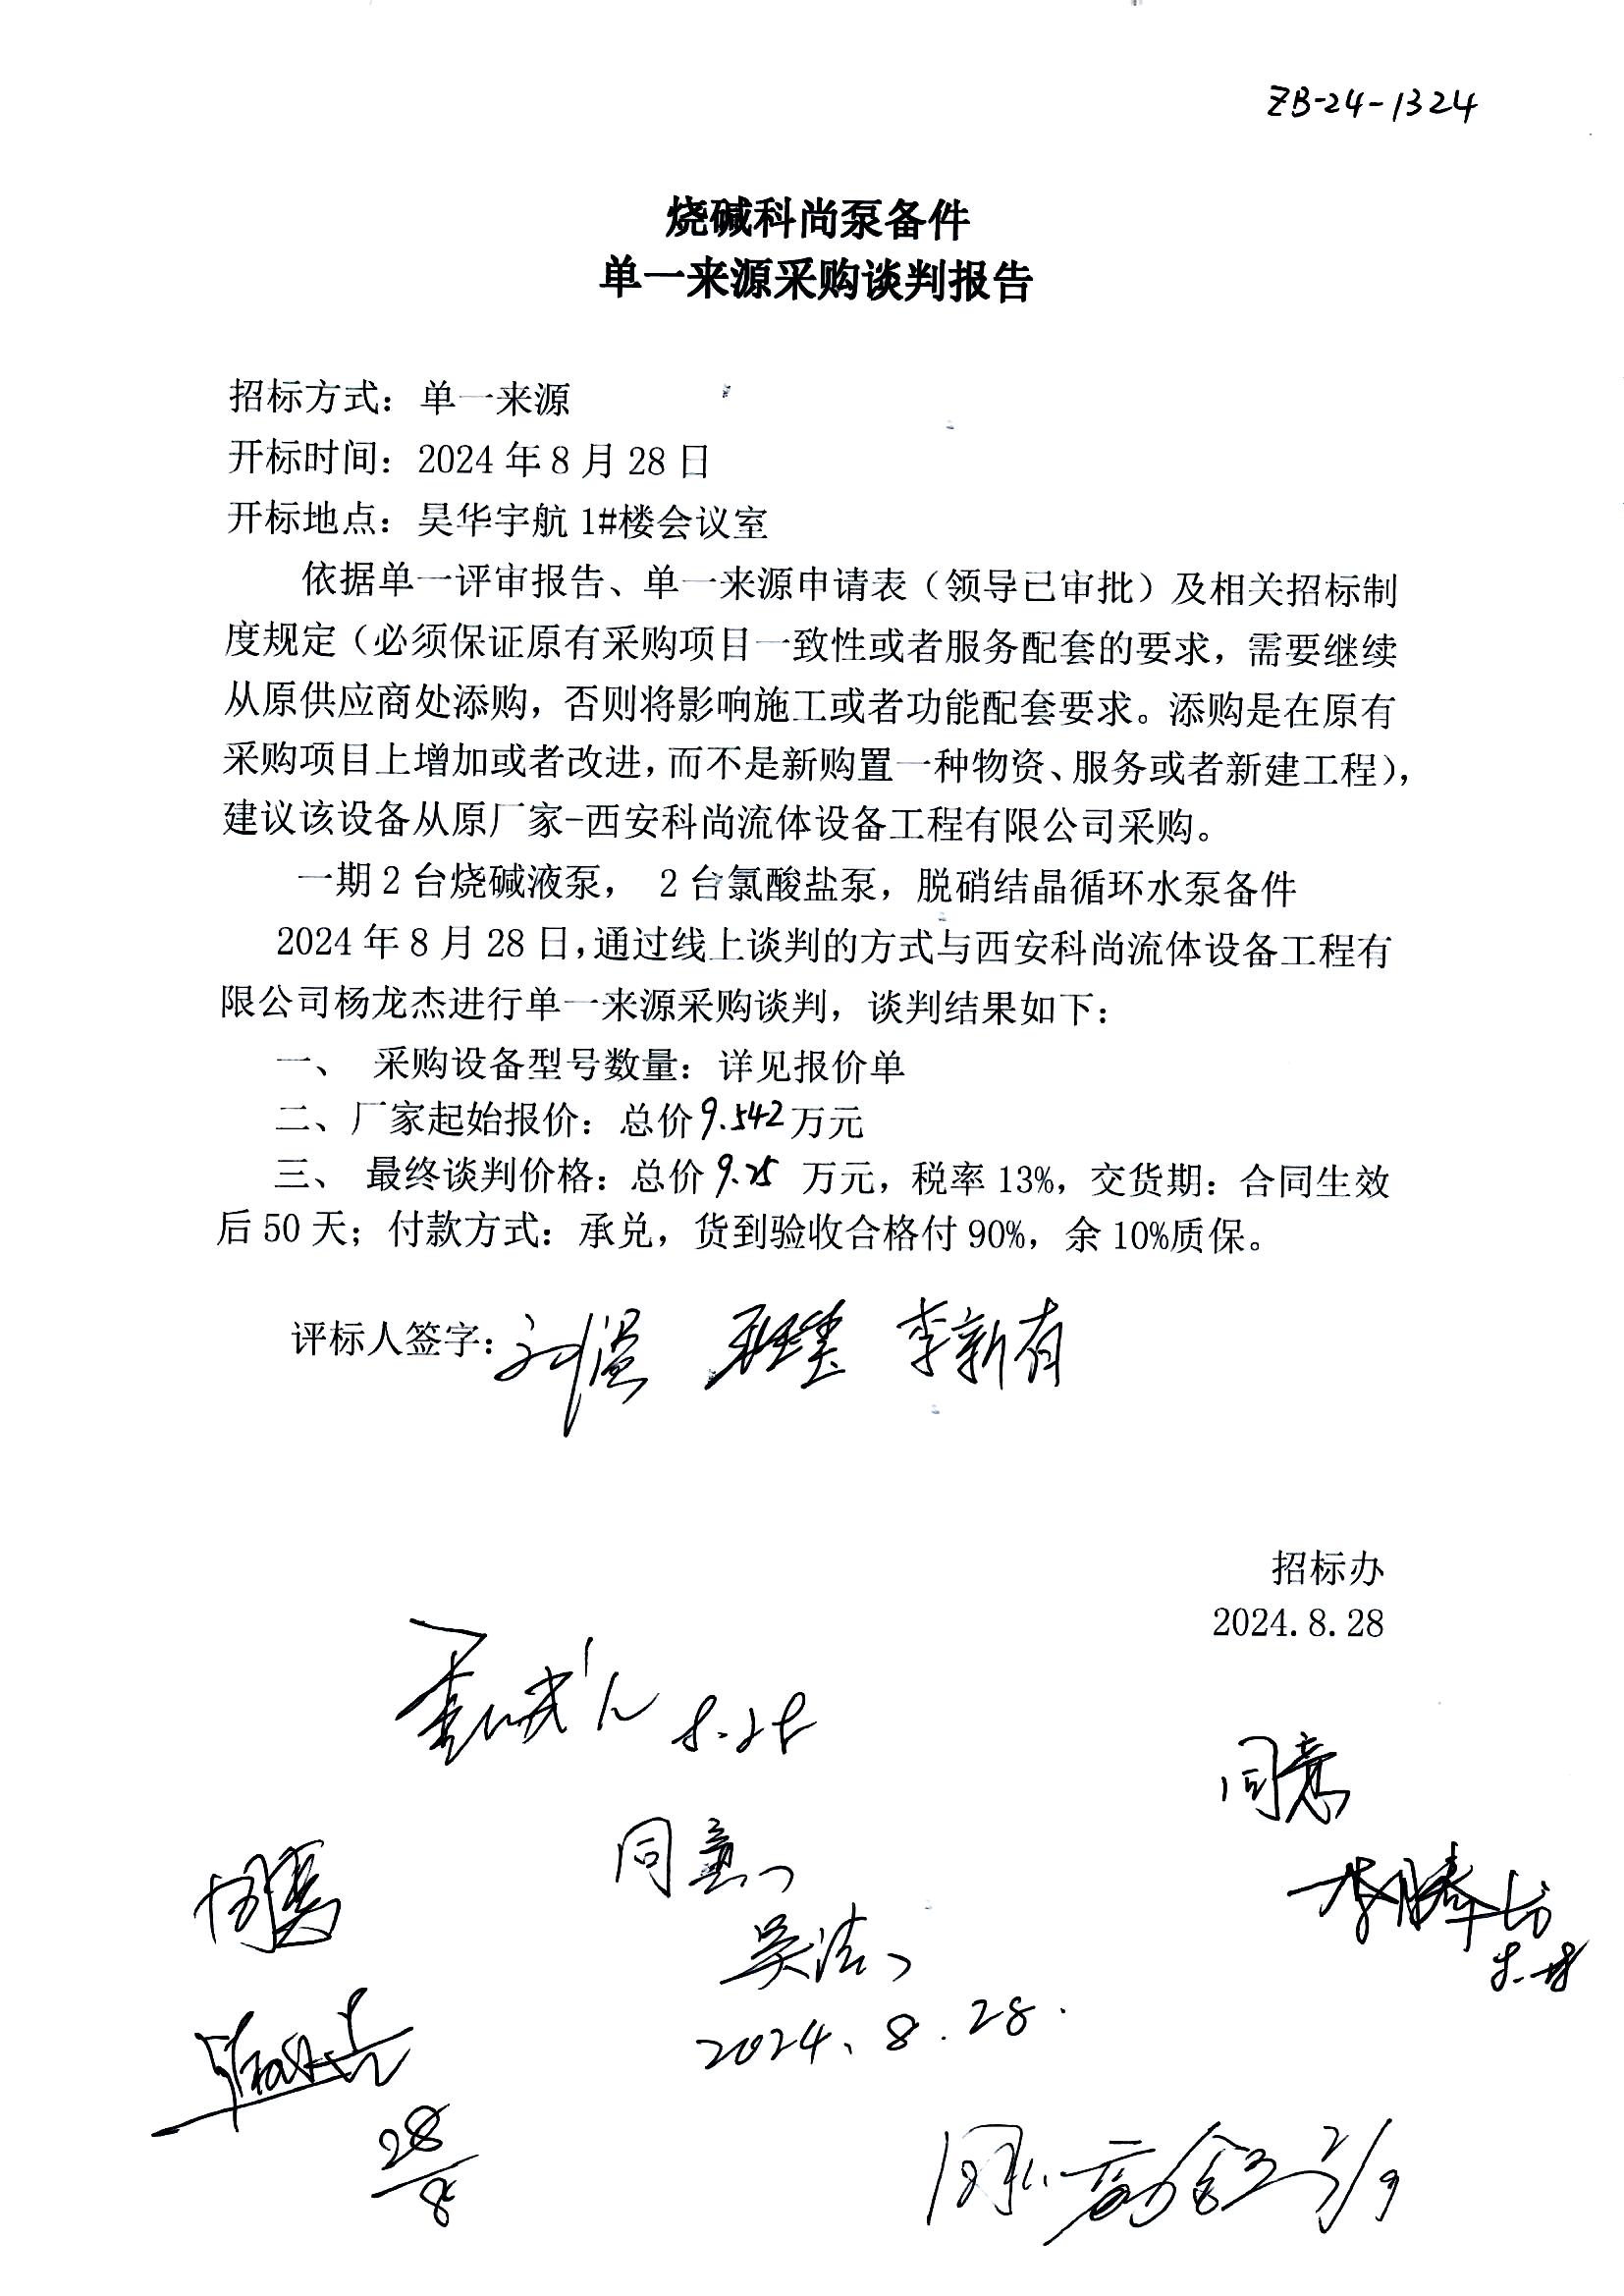 ZB-24-1324
烧碱科尚泵备件
单一来源采购谈判报告
招标方式：单一来源
开标时间：2024年8月28日
开标地点：昊华宇航1#楼会议室
依据单一评审报告、单一来源申请表（领导已审批）及相关招标制
度规定（必须保证原有采购项目一致性或者服务配套的要求，需要继续
从原供应商处添购，否则将影响施工或者功能配套要求。添购是在原有
采购项目上增加或者改进，而不是新购置一种物资、服务或者新建工程），
建议该设备从原厂家-西安科尚流体设备工程有限公司采购。
一期2台烧碱液泵， 2台氯酸盐泵，脱硝结晶循环水泵备件
2024年8月28日，通过线上谈判的方式与西安科尚流体设备工程有
限公司杨龙杰进行单一来源采购谈判，谈判结果如下：
一、 采购设备型号数量：详见报价单
二、厂家起始报价：总价9.542万元
三、 最终谈判价格：总价9.25 万元，税率13%，交货期：合同生效
后50天；付款方式：承兑，货到验收合格付90%，余10%质保。
评标人签字： 李新有
招标办
2024.8.28
同意
同意
2024.8.28.
28/8